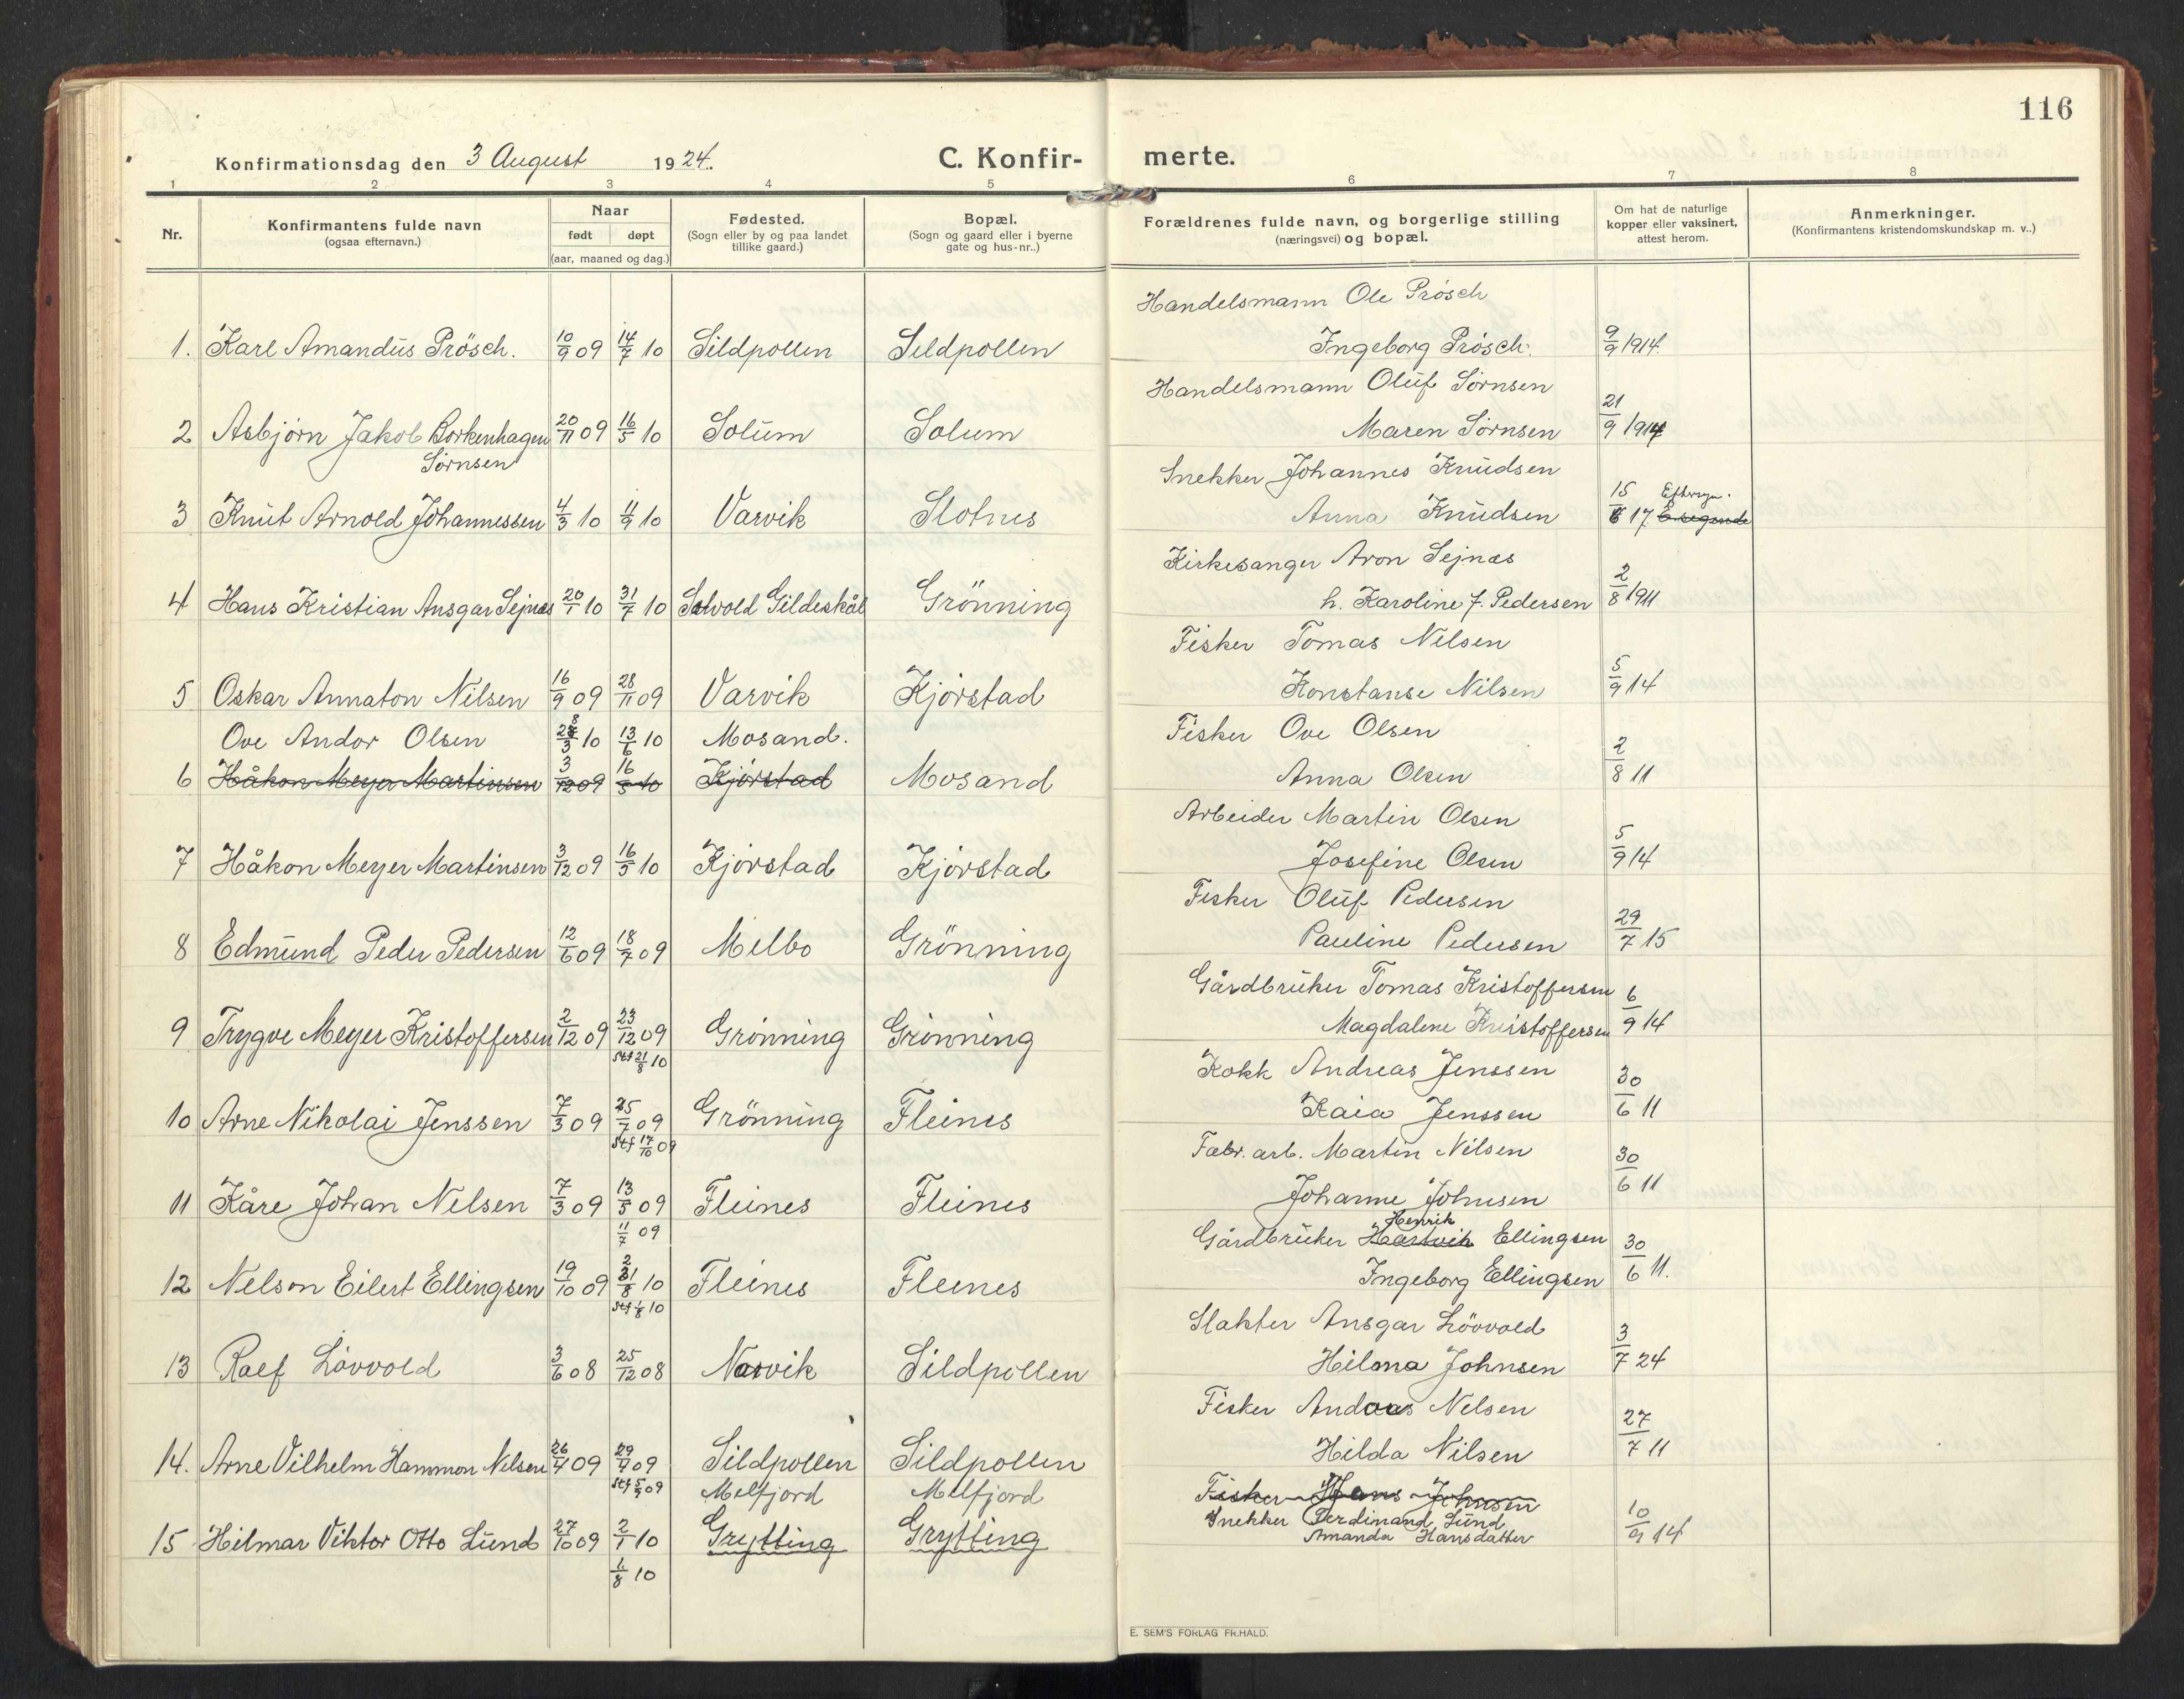 116
Konfirmationsdag den 3 August 1924.
C. Konfir-merte.
1 2 3 4 5 6 7 8
Nr.
Konfirmantens fulde navn
(ogsaa efternavn.)
Naar
født døpt
(aar, maaned og dag.)
Fødested.
(Sogn eller by og paa landet
tillike gaard.)
Bopæl.
(Sogn og gaard eller i byerne
gate og hus-nr..)
Forældrenes fulde navn, og borgerlige stilling
(næringsvei) og bopæl.
Om hat de naturlige
kopper eller vaksinert,
attest herom.
Anmerkninger.
(Konfirmantens kristendomskundskap m. v..)
Handelsmann Ole Prösch
1. Karl Amandus Prösch. 10/9 09 14/7 10 Sildpollen Sildpollen Ingeborg Prösch. 9/9 1914.
Handelsmann Oluf Sörnsen
2 Asbjörn Jakob Borkenhagen 20/11 09 16/5 10 Solum Solum Maren Sörnsen 21/9 1914
Sörnsen
Snekker Johannes Knudsen
3 Knut Arnold Johannessen 4/3 10 11/9 10 Varvik Slotnes Anna Knudsen 15/8 17 Eftersyn.
Kirkesanger Aron Sejnæs
4 Hans Kristian Ansgar Sejnæs 20/1 10 31/7 10 Solvold Gildeskål Grönning h. Karoline J. Pedersen 2/8 1911
Fisker Tomas Nilsen
5 Oskar Annaton Nilsen 16/9 09 28/11 09 Varvik Kjörstad Konstanse Nilsen 5/9 14
Ove Andor Olsen 28/3 10 13/6 10 Mosand. Fisker Ove Olsen
6 Håkon Meyer Martinsen 3/12 09 16/5 10 Kjörstad Mosand Anna Olsen 2/8 11
Arbeider Martin Olsen
7 Håkon Meyer Martinsen 3/12 09 16/5 10 Kjörstad Kjörstad Josefine Olsen 5/9 14
Fisker Oluf Pedersen
8 Edmund Peder Pedersen 12/6 09 18/7 09 Melbo Grönning Pauline Pedersen 29/7 15
Gårdbruker Tomas Kristoffersen
9 Trygve Meyer Kristoffersen 2/12 09 23/12 09 Grönning Grönning Magdalene Kristoffersen 6/9 14
stf 21/8 10
Kokk Andreas Jenssen
10 Arne Nikolai Jenssen 7/3 09 25/7 09 Grönning Fleines Kaia Jenssen 30/6 11
stf 17/10 09
Fabr. arb. Martin Nilsen
11 Kåre Johan Nilsen 7/3 09 13/5 09 Fleines Fleines Johanne Johnsen 30/6 11
11/7 09
Henrik
Gårdbruker Hartvik Ellingsen
12 Nelson Eilert Ellingsen 19/10 09 21/8 10 Fleines Fleines Ingeborg Ellingsen 30/6 11.
stf 1/8 10
Slakter Ansgar Lövvold
13 Ralf Lövvold 3/6 08 25/12 08 Narvik Sildpollen Hilma Johnsen 3/7 24
Fisker Andreas Nilsen
14. Arne Vilhelm Hammon Nilsen 26/4 09 29/7 09 Sildpollen Sildpollen Hilda Nilsen 27/7 11
stf 5/9 09 Melfjord Melfjord
Fisker Hans Johnsen
Snekker Ferdinand Lund
15 Hilmar Viktor Otto Lund 27/10 09 2/1 10 Grytting Grytting Amanda Hansdatter 10/9 14
1/8 10
E. SEM'S FORLAG FR.HALD.